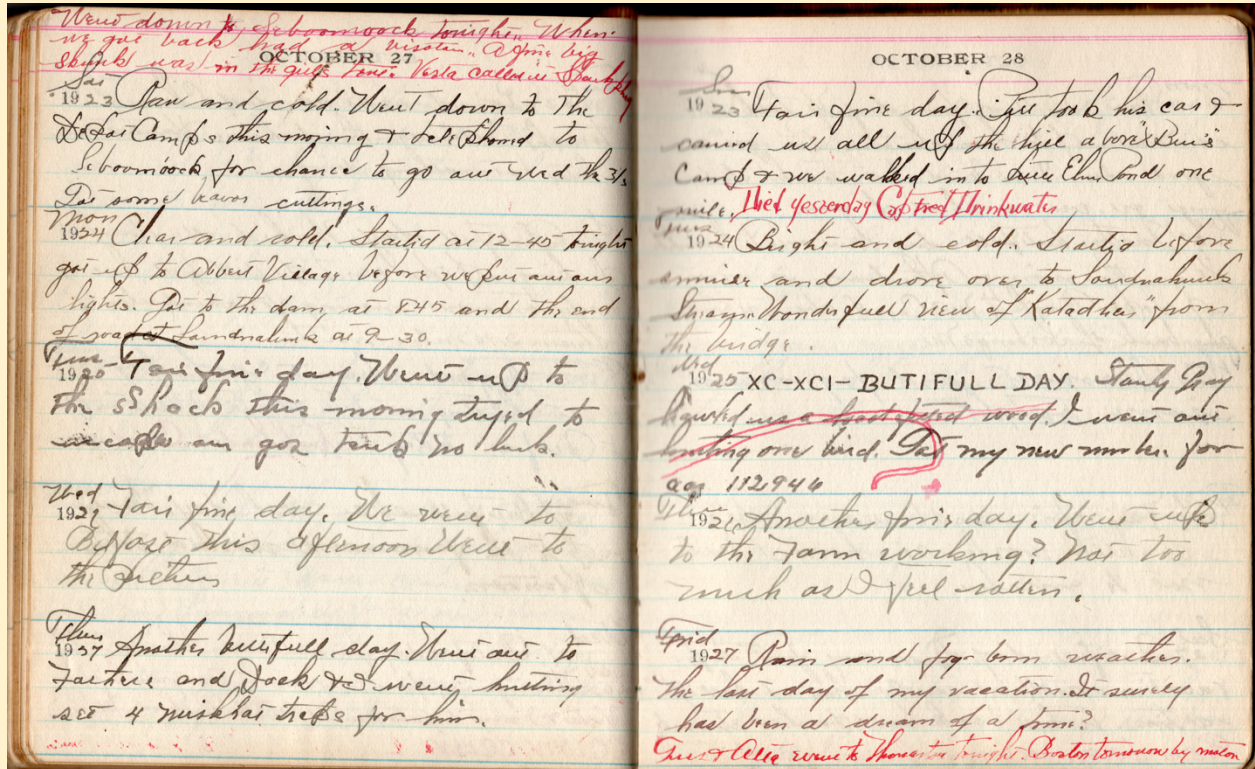 Went down to Seboomook tonight. When
we got back had a visitor. A fine big
skunk was in the girls tent. Vesta called it
OCTOBER 27
Sat
1923 Raw and cold. Went down to the
Camps this morning & telephoned to
Seboomook for chance to go out Wed the 31st
Got some beavor cuttings.
Mon
1924 Clear and cold. Started at 12-45 tonight
got up to Abbert Village before we put out our
lights. Got to the dam at 8.45 and the end
of road at Sourdnahunk at 9-30.
Tues
1925 Fair fine day. Went up to
the sShack this morning tryed to
no luck.
Wed
1926 Fair fine day. We went to
Belfast this afternoon Went to
the
Thur
1927 Another butifull day. Went out to
Fathers and Dock & I went hunting
set 4 muskrat traps for him.
OCTOBER 28
Sun
1923 Fair fine day. took his car &
carried us all up the hill above
Camp & we walked in to Elm Pond one
mile. Died yesterday Capt Fred Drinkwater
Tues
1924 Bright and cold. Started before
sunrise and drove over to Sourdnahunk
Stream Wonderfull view of "Katadhan" from
the bridge.
Wed
1925 XC-XCI- BUTIFULL DAY. Gray
wood. I went out
hunting one bird. Got my new number for
car 112946
Thur
1926 Another fine day. Went up
to the Farm working? Not too
much as I feel rotten.
Frid
1927 Rain and fog bum weather.
The last day of my vacation. It surely
has been a dream of a time?
Gus & Alta went to Thomaston tonight. Boston tomorrow by motor